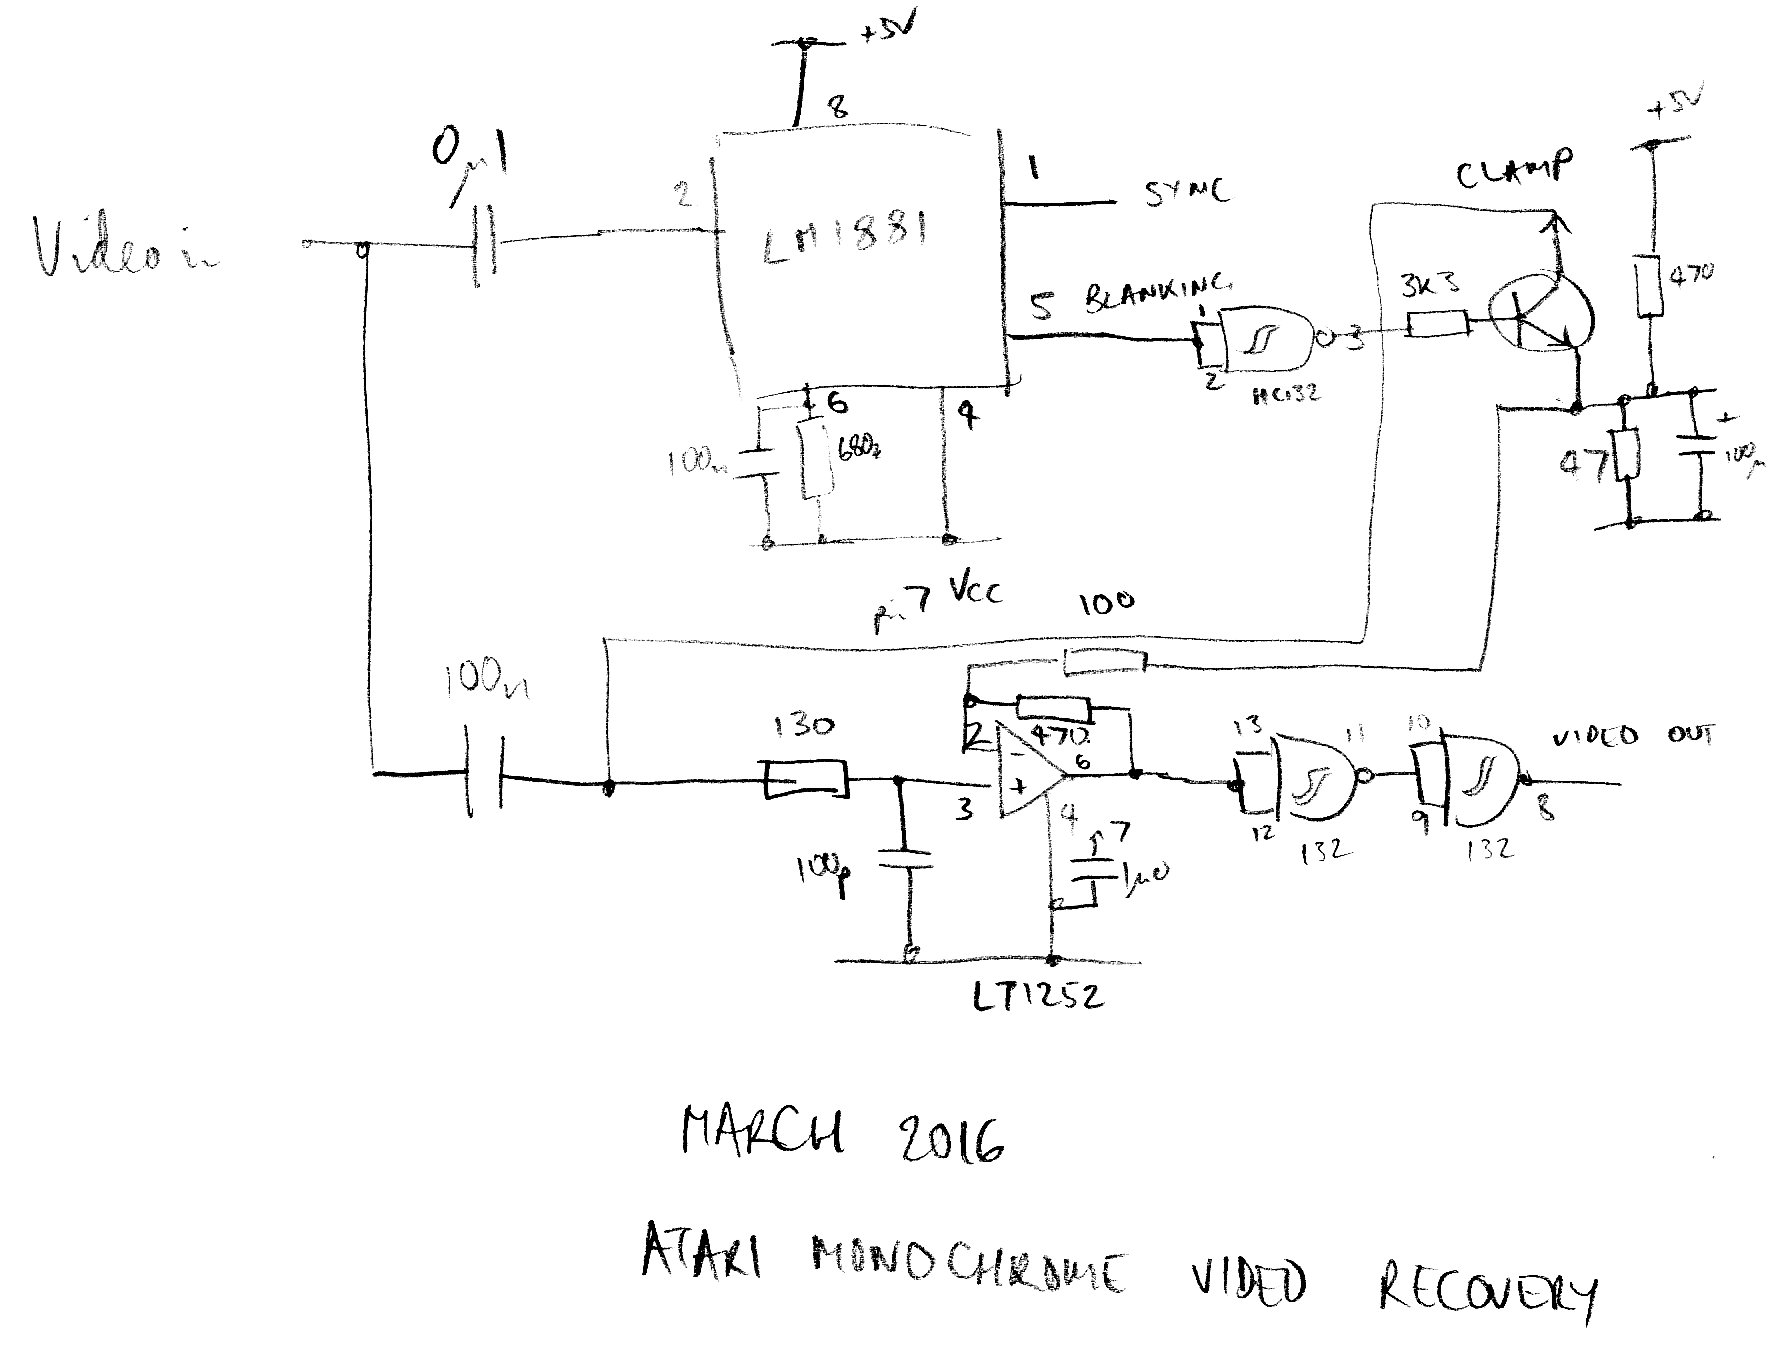 +5V
8
+5V
0µ1
CLAMP
1
2
SYNC
Video in
LM1881
470
3K3
5 BLANKING
1
3
2
HC132
6
4
+
100n
680k
47
100µ
pin 7 VCC
100
100n
130
13
11
10
VIDEO OUT
2
470
6
-
+
3
4
12
9
8
7
132
132
100p
1µ0
LT1252
MARCH 2016
ATARI MONOCHROME VIDEO RECOVERY